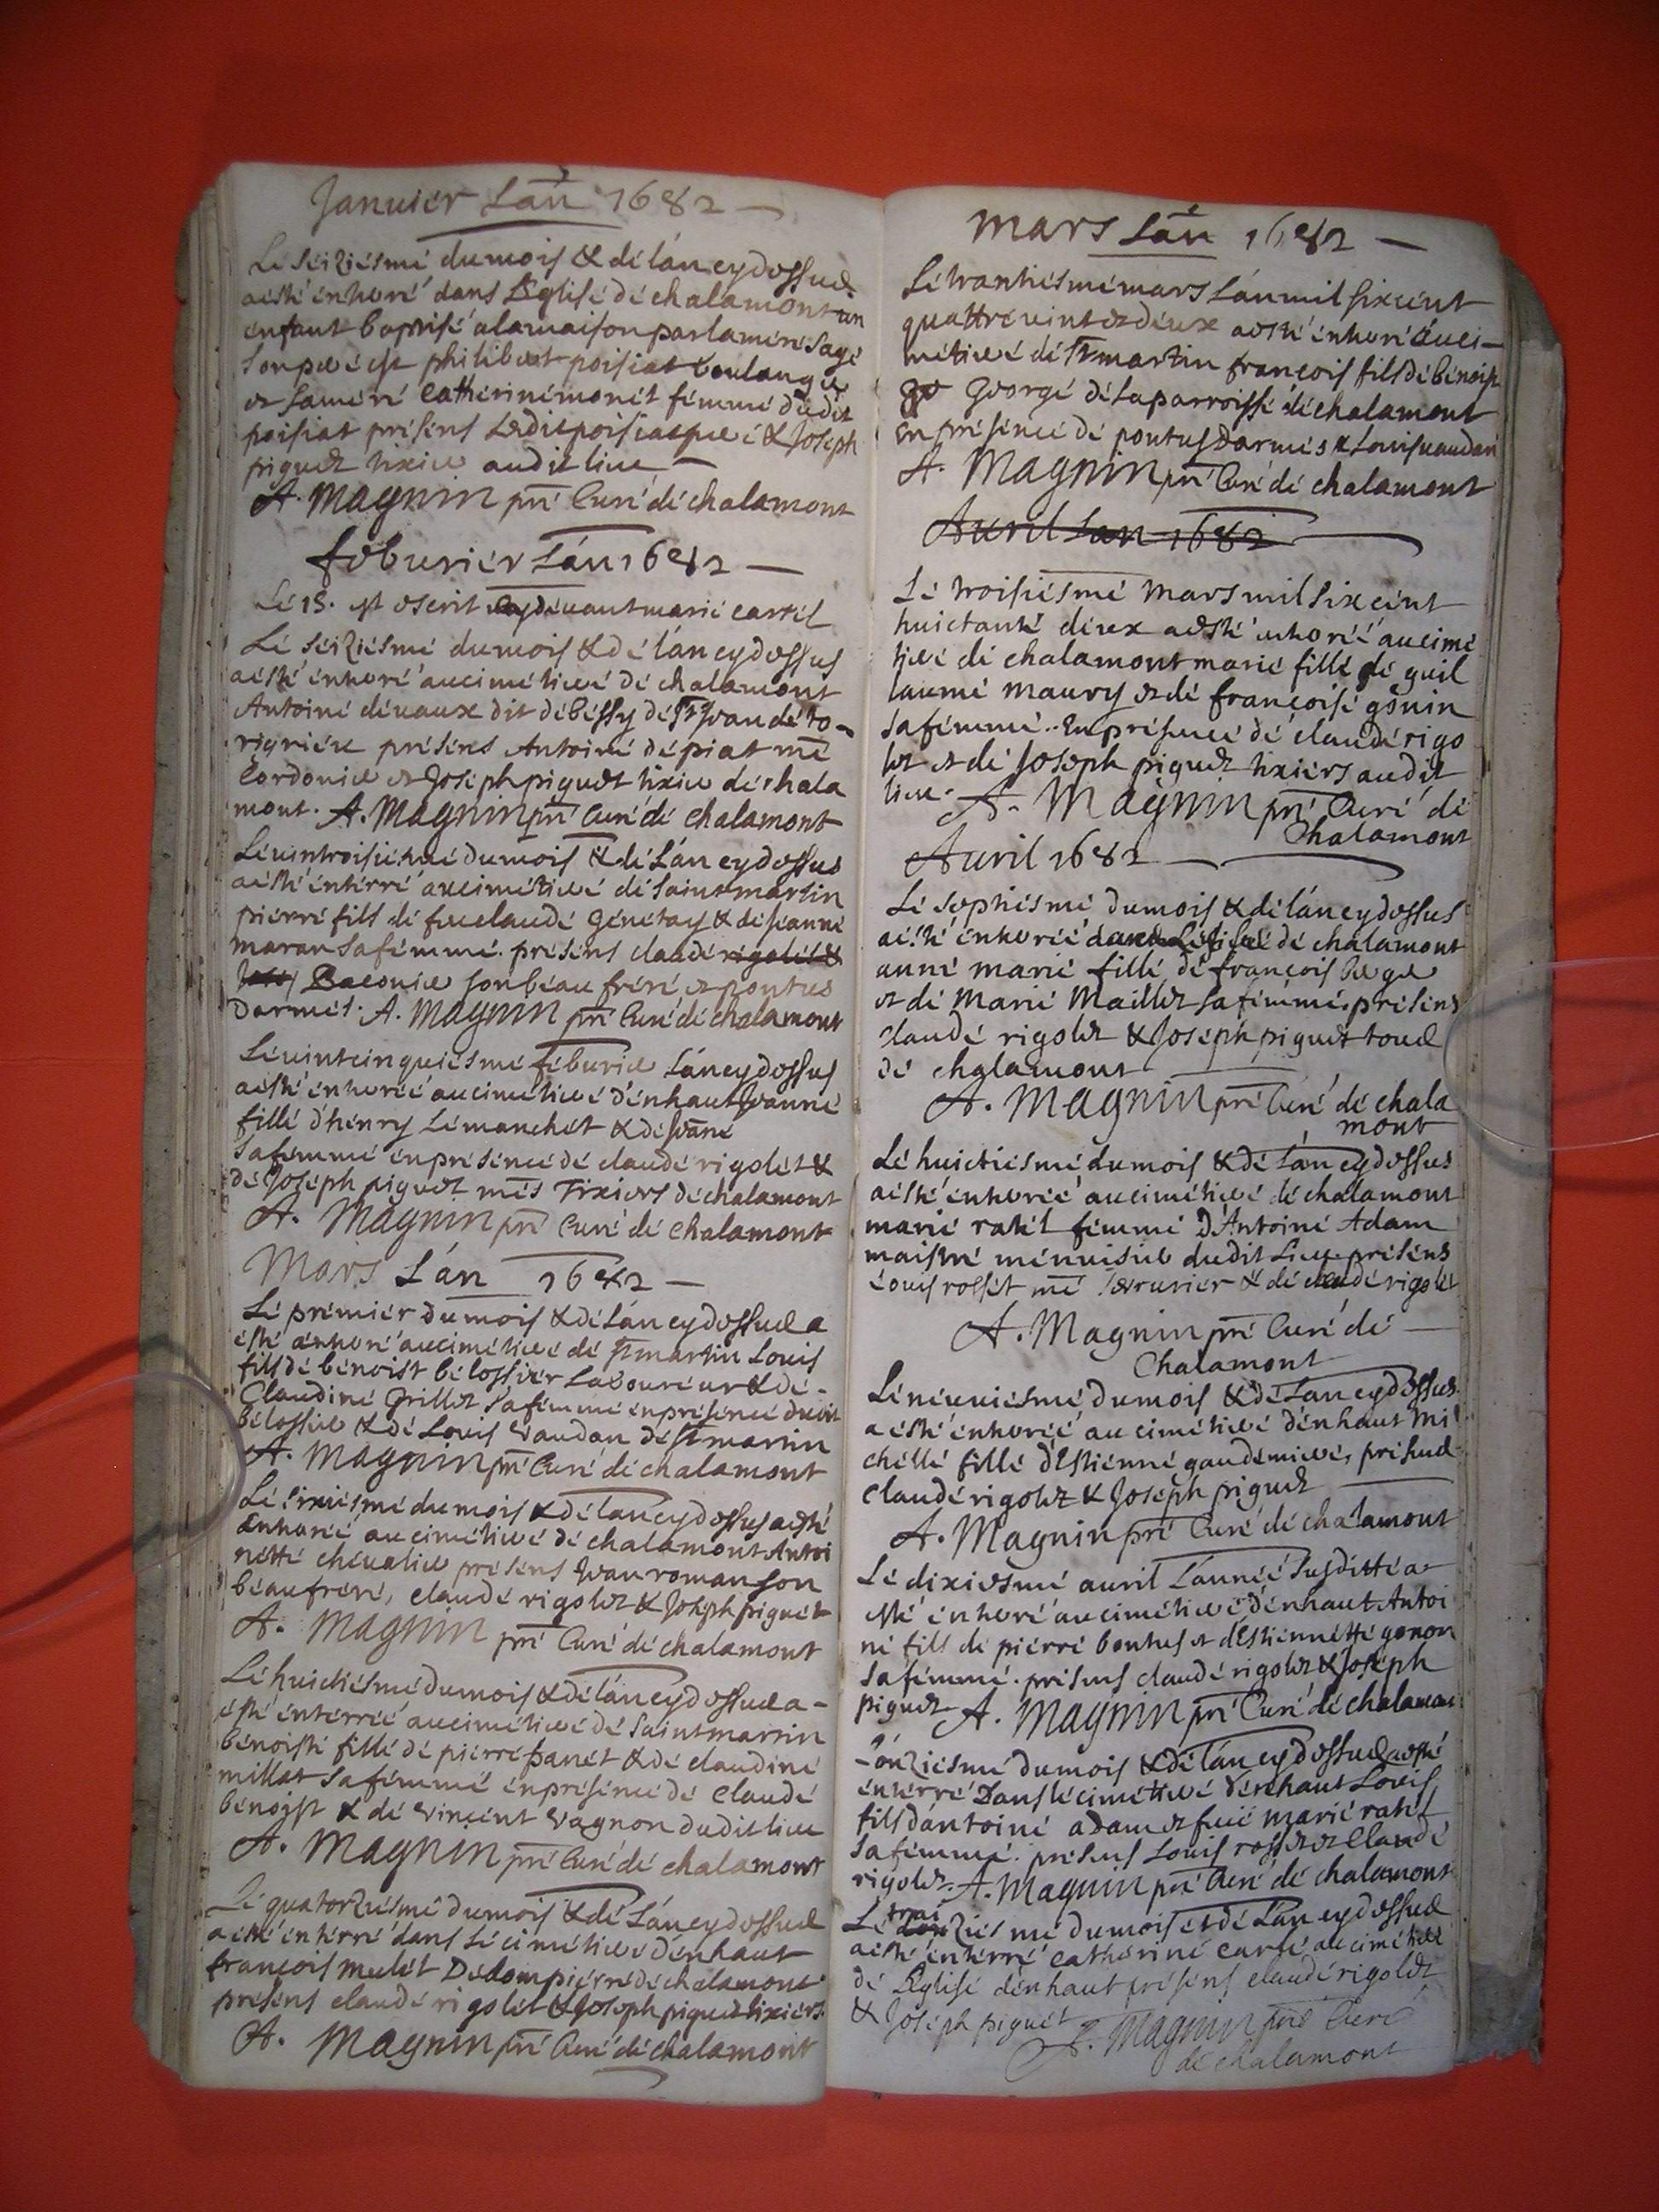 Januiér Lán 1682
Lé séiziésmé du mois & dé lán cy dessus
a ésté énterré dans Léglisé dé chalamont un
énfant baptisé a la maison par la méré sagé
son peré est philibert poisiat boulangér
et sa méré cathériné monét fémmé dudit
poisiat présens Ledit poisiat peré & Joseph
piguet tixier audit lieu
A. Magnin pré Curé dé chalamont
féburiér Lán 1682
Lé 15. est escrit cy dévant marié carrél
Lé séiziésmé du mois & dé lán cy dessus
a ésté énterré au cimétieré dé chalamont
Antoiné dévaux dit débéssy dé St Jean dé to-
rigniéu présens Antoiné dépiat mé
Cordonier et Joséph piguet tixier dé chala
mont. A. Magnin pré Curé dé chalamont
Lé vintroisiémé du mois & dé Lán cy dessus
a ésté éntérré au cimétieré dé saint martin
piérré fils dé feu claudé génétay & dé jeanné
maran sa fémmé. présens claudé rigolét &
Baconier son béau fréré et pontus
Darmés. A. Magnin pré Curé dé chalamont
Lé vintcinquiésmé féburier Lán cy dessus
a ésté énterréé au cimétieré d'énhaut Jeanné
fillé d'hénry Lémanchét & dé Jeané
sa fémmé én préséncé dé claudé rigolét &
dé Joséph piguet més Tixiers dé chalamont
A. Magnin pré Curé dé chalamont
Mars Lán 1682
Lé prémiér du mois & dé Lán cy dessus a
ésté énterré au cimétieré dé St martin Louis
fils dé bénoist bélossiér Labouréur & dé
Claudiné Grillet sa fémmé én préséncé dudit
bélossier & dé Louis Vaudan dé St martin
A. Magnin pré Curé dé chalamont
Lé sixiésmé du mois & dé lán cy dessus a esté
énterréé au cimétieré dé chalamont Antoi
nétté chévalier présens Jean roman son
béaufréré, claudé rigolet & Joséph piguét
A. Magnin pré Curé dé chalamont
Lé huictiésmé du mois & dé lán cy dessus a
ésté énterréé au cimétieré dé Saint martin
bénoisté fillé dé piérré panét & dé claudiné
millat sa fémmé én préséncé dé Claudé
bénoist & dé Vincént Vagnon dudit lieu
A. Magnin pré Curé dé chalamont
Lé quatorziésmé du mois & dé Lán cy dessus
a ésté éntérré dans lé cimétieré d'énhaut
françois mulét Dé dompiérré dé chalamont
présens claudé rigolét & Joseph piguet tixiérs.
A. Magnin pré Curé dé chalamont
mars Lán 1682
Lé trantiésmé mars Lán mil six cént
quattré vint et déux a esté énterré au ci-
métieré dé St martin françois fils dé bénoist
Georgé dé la parroissé dé chalamont
en préséncé dé pontus Darmés & Louis vaudan
A. Magnin pré Curé dé chalamont
Auril Lan 1682
Lé troisiésmé mars mil six cént
huictanté déux a esté énterréé au cimé
tieré dé chalamont marié fillé dé guil
laumé maury et dé françoisé génin
sa fémmé. En préséncé dé claudé rigo
let et dé Joseph piguet tixiérs audit
lieu. A. Magnin pré Curé dé
Chalamont
Auril 1682
Lé septiésmé du mois & dé lán cy dessus
a ésté énterréé dé chalamont
anné marié fillé dé françois
et dé Marié Maillet sa fémmé. présens
claudé rigolet & Joséph piguet tous
dé chalamont
A. Magnin pré Curé dé chala
mont
Lé huictiésmé du mois & dé Lán cy dessus
a ésté énterréé au cimétieré dé chalamont
marié ratét fémmé D'Antoiné Adam
maistré ménuisier dudit Lieu présens
Louis rossét mé serruriér & dé claudé rigolet
A. Magnin pré Curé dé
Chalamont
Lé néuuiésmé du mois & dé Lán cy dessus
a ésté énterréé au cimétieré d'énhaut Mi
chéllé fillé d'Estienné gaudémieré, présens
claudé rigolet & Joséph piguet
A. Magnin pré Curé dé chalamont
Lé dixiesmé auril Lánnéé susditté a
esté énterré au cimétieré d'énhaut Antoi
né fils dé piérré bontus et d'Estiénnétté gonon
sa fémmé. présens claudé rigolet & Joséph
piguet A. Magnin pré Curé dé chalamont
L'onziésmé du mois & dé lán cy dessus a esté
éntérré Dans lé cimétieré d'énhaut Louis
fils dántoiné adam et feué marié ratét
sa fémmé. présens Louis rosset et Claudé
rigolet. A. Magnin pré Curé dé chalamont
Lé traiziésmé du mois et dé Lán cy dessus
a ésté énterré cathériné carré au cimétieré
dé Léglisé dénhaut présens claudé rigolet
& Joséph piguét A. Magnin pré Curé
dé chalamont